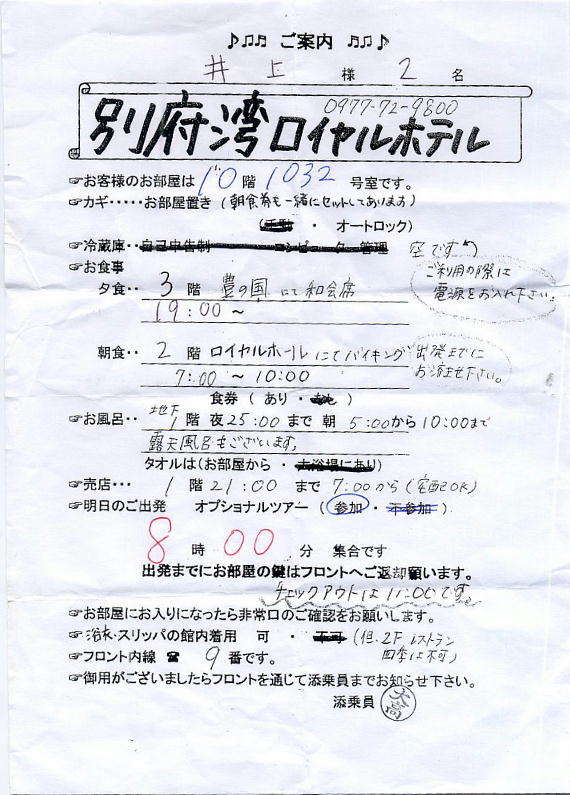 ♪♫♬ ご案内 ♬♫♪
井上 様 2 名
0977-72-9800
別府湾ロイヤルホテル
☞お客様のお部屋は 10 階 1032 号室です。
☞カギ‥‥‥お部屋置き(朝食券も一緒にセットしてあります)
(手動 ・ オートロック)
☞冷蔵庫‥自己申告制 コンピューター管理 空です
ご利用の際は
電源をお入れ下さい。
☞お食事
夕食‥ 3 階 豊の国 にて和会席
19:00 ~
朝食‥ 2 階 ロイヤルホールにてバイキング
出発までに
お済ませ下さい。
7:00 ~ 10:00
食券 ( あり ・ )
☞お風呂‥ 地下1階 夜25:00まで 朝 5:00から10:00まで
露天風呂もございます。
タオルは(お部屋から ・ 大浴場にあり)
☞売店‥‥ 1 階 21:00 まで 7:00から(宅配OK)
☞明日のご出発 オプショナルツアー ( 参加 ・ 不参加 )
8 時 00 分 集合です
出発までにお部屋の鍵はフロントへご返却願います。
チェックアウトは11:00です
☞お部屋にお入りになったら非常口のご確認をお願いします。
☞浴衣・スリッパの館内着用 可 ・ 不可 (但、2F レストラン
四季は不可)
☞フロント内線 ☎ 9 番です。
☞御用がございましたらフロントを通じて添乗員までお知らせ下さい。
添乗員